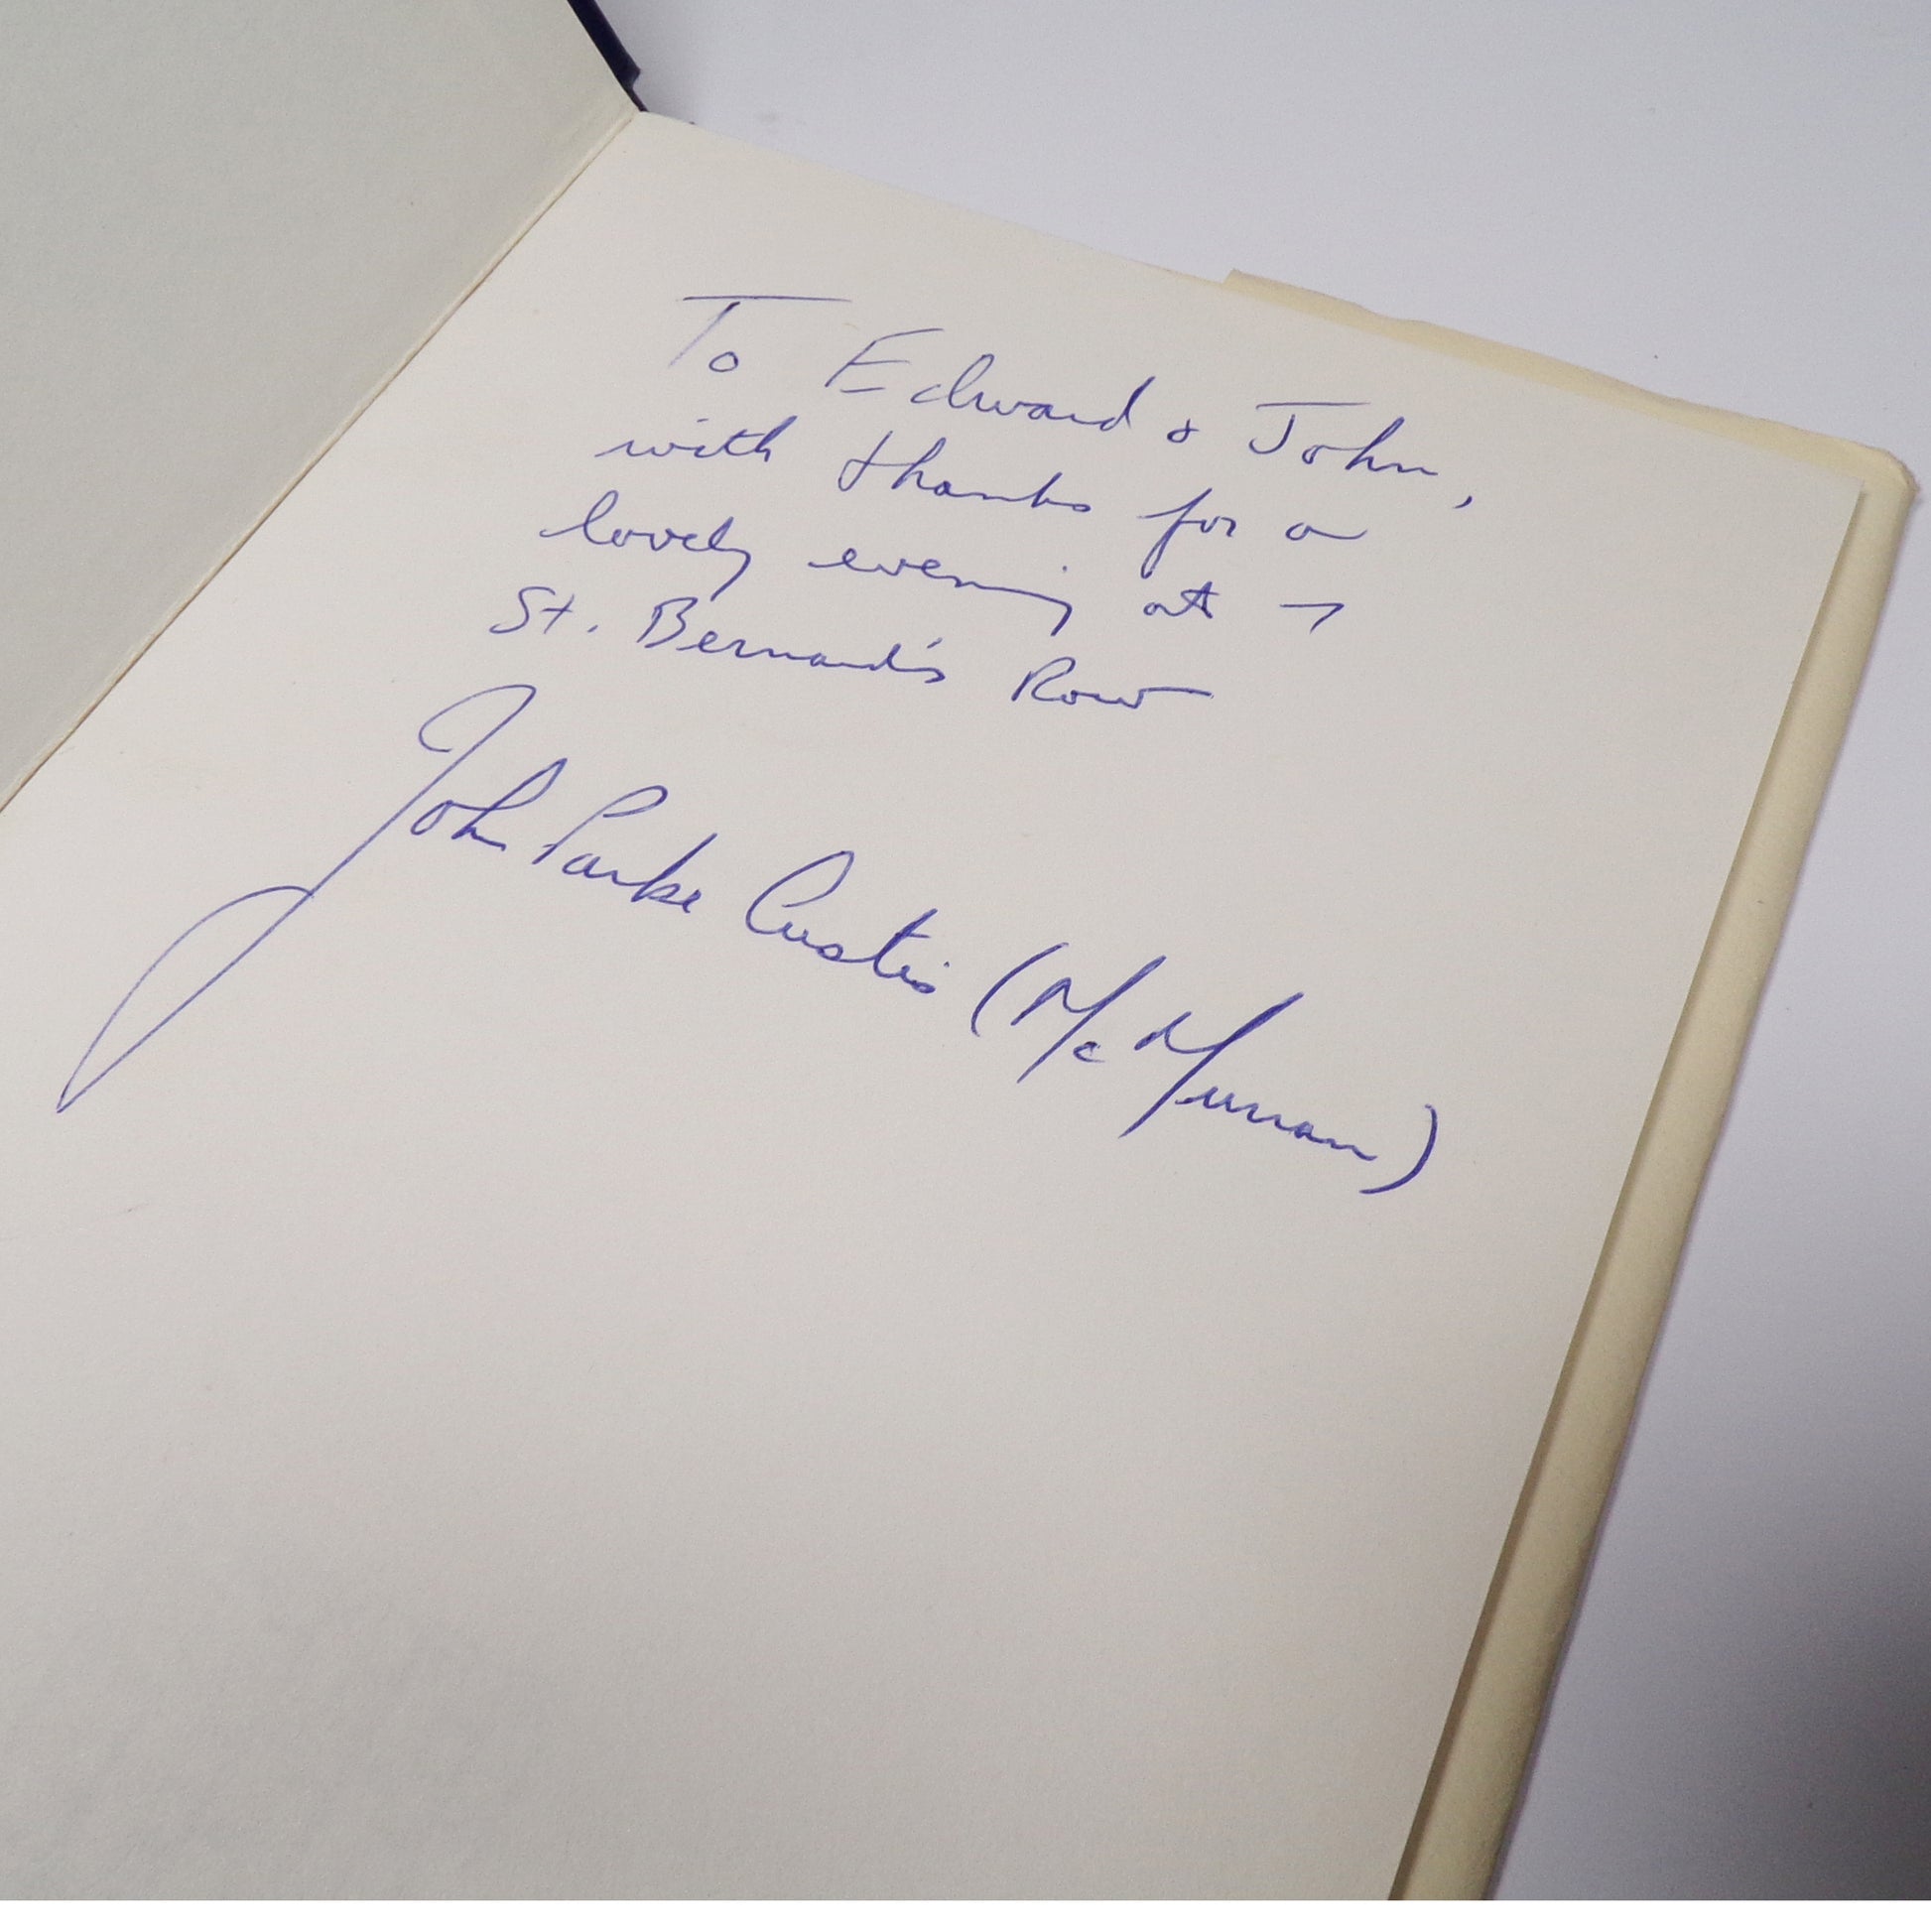 To Edward & John,
with thanks for a
lovely evening at 7
St. Bernard's Row
John Parke Custis (McMurran)